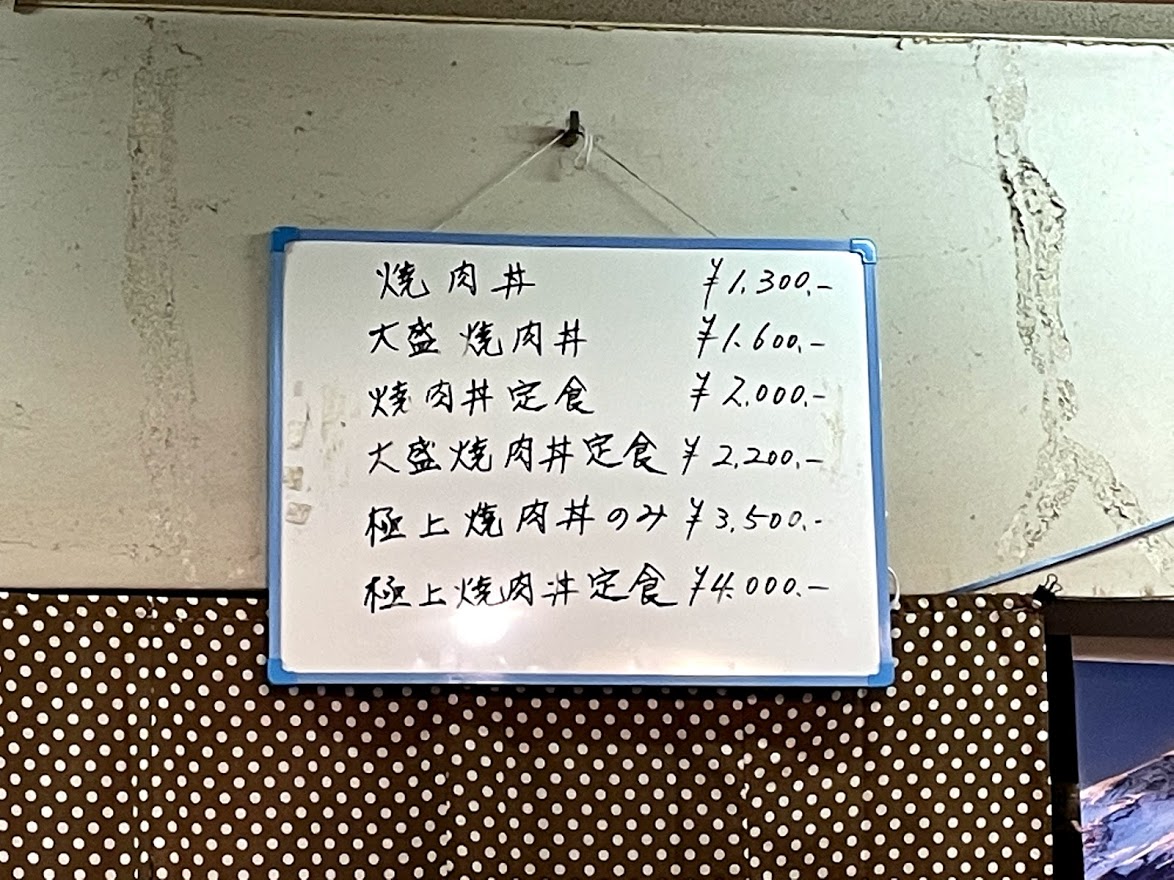 焼肉丼 ¥1.300.-
大盛焼肉丼 ¥1.600.-
焼肉丼定食 ¥2.000.-
大盛焼肉丼定食 ¥2.200.-
極上焼肉丼のみ ¥3.500.-
極上焼肉丼定食 ¥4.000.-